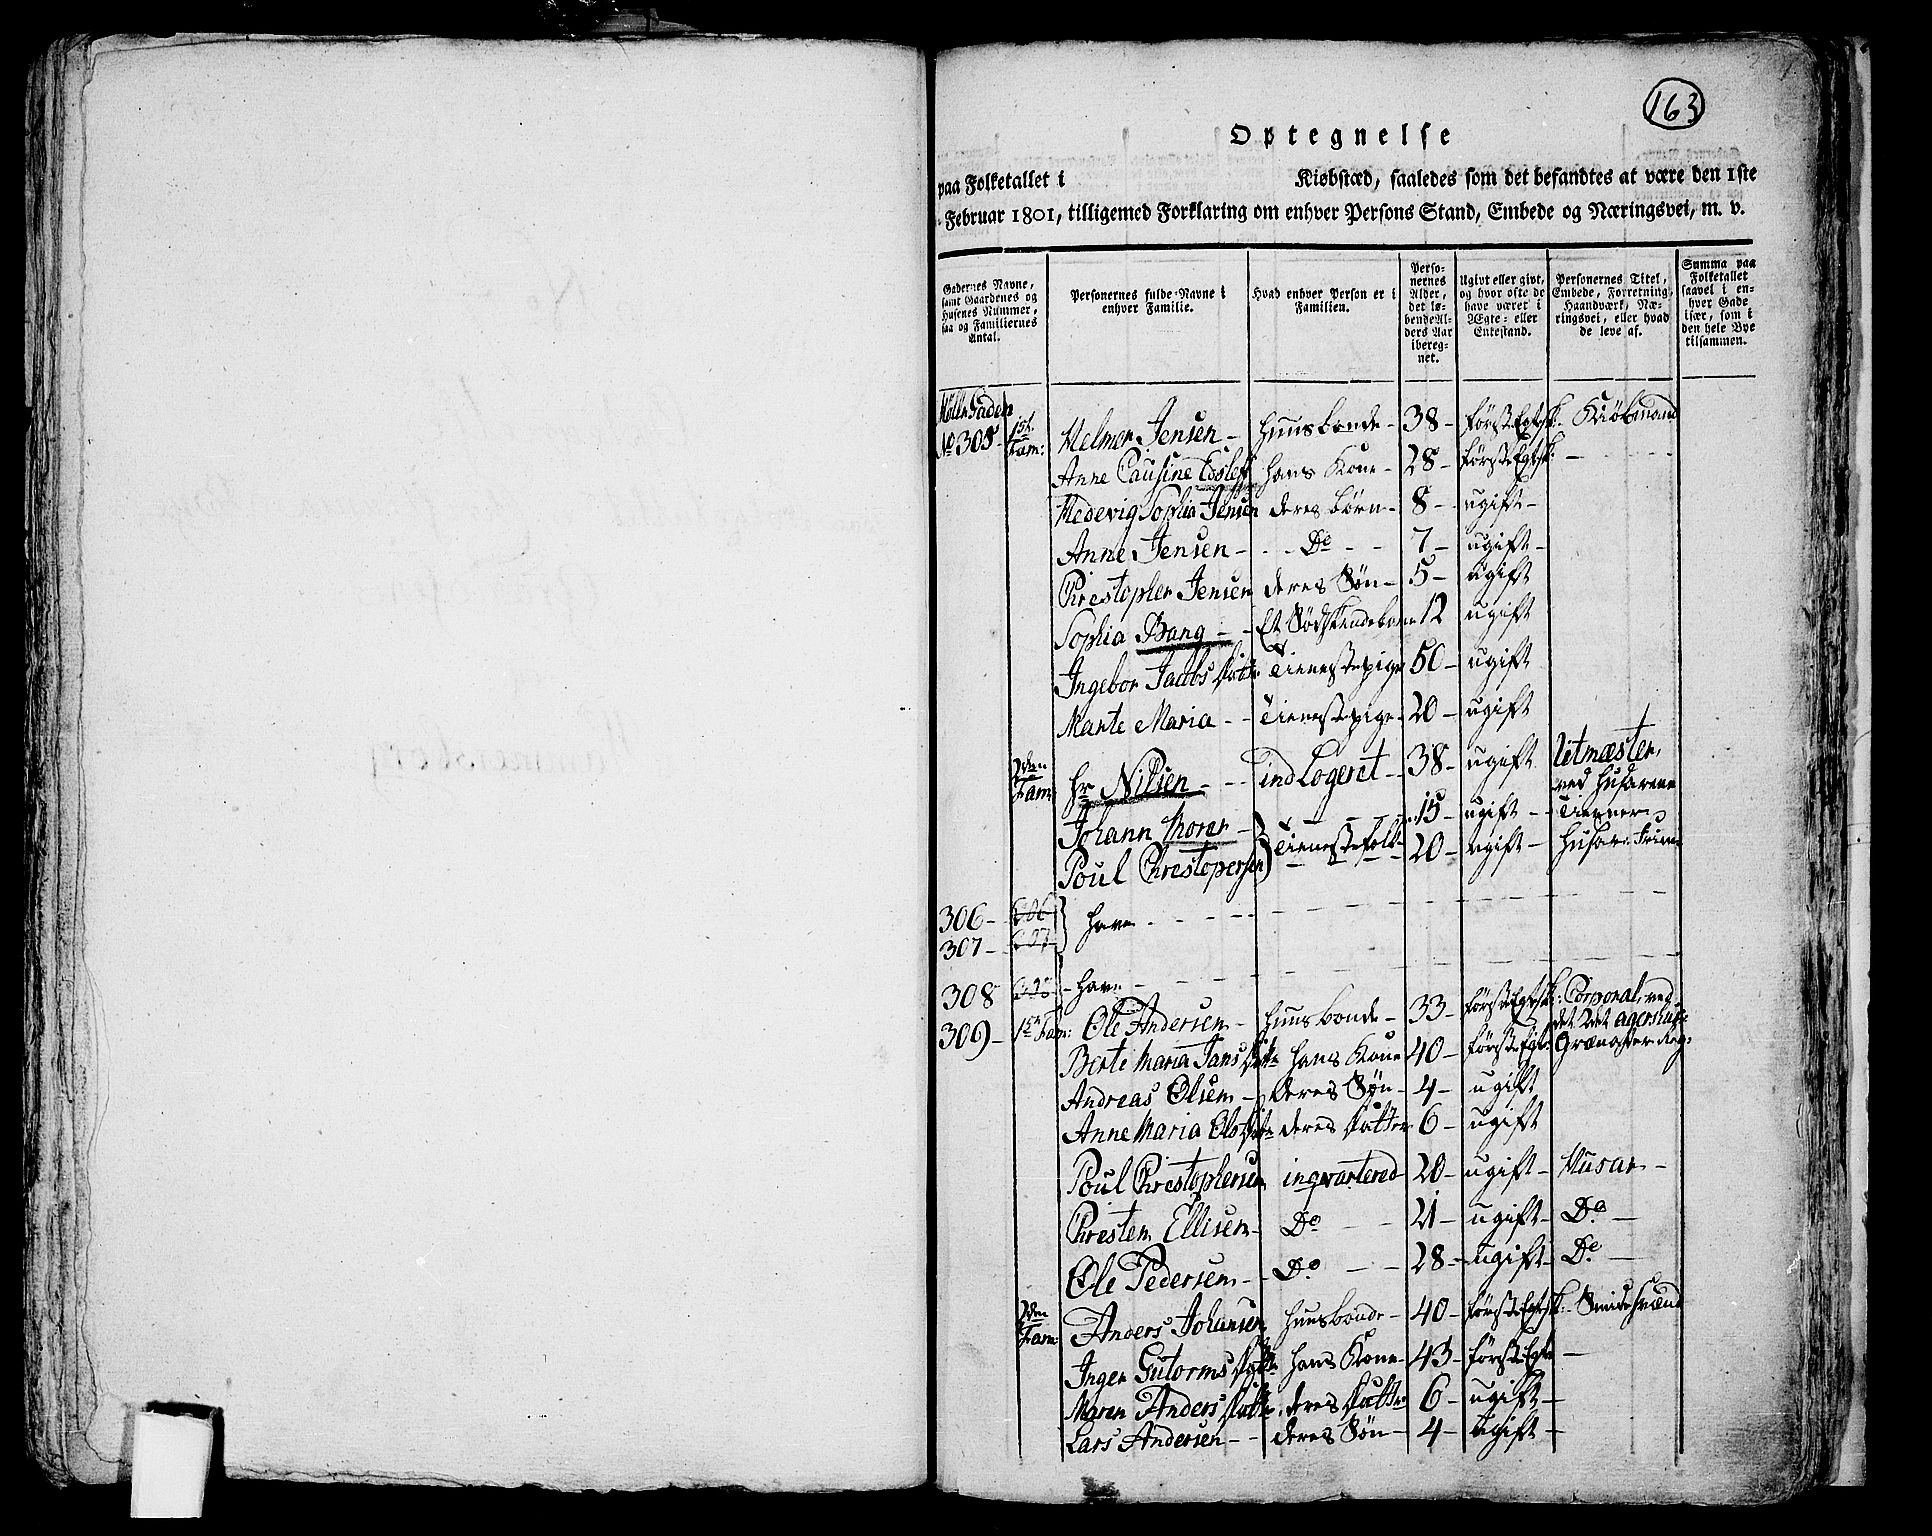 163
Optegnelse
paa Folketallet i Kiøbstæd, saaledes som det befandtes at være den 1ste
Februar 1801, tilligemed Forklaring om enhver Persons Stand, Embede og Næringsvei, m. v.
Gadernes Navne, samt Gaardenes og Husenes Nummer, saa og Familiernes Antal.
Personernes fulde Navne i enhver Familie.
Hvad enhver Person er i Familien.
Personernes Alder, det løbende Alders Aar iberegnet.
Ugivt eller givt, og hvor ofte de have været i Ægte- eller Enkestand.
Personernes Titel, Embede, Forretning, Haandværk, Næringsvei, eller hvad de leve af.
Summa paa Folketallet saavel i enhver Gade især, som i den hele Bye tilsammen.
Gaden
No 305 1ste Fam: Helmer Jensen - Huusbonde - 38 - første Egtsk. Kiøbmand
Anne Causine hans Kone - 28 - første Egtsk: -
Hedevig Sophia Jensen deres børn - 8 - ugift -
Anne Jensen - - Do - - 7 - ugift -
Christopher Jensen deres Søn - 5 - ugift
Sophia Bang - - Et Sødskendebarn 12 ugift
Ingebor Jacobs Datter Tienestepige 50 - ugift
Marte Maria - - Tienestepige - 20 - ugift
2den Fam: Hr Nilsen - - ind Logeret - 38 - ugift
ved Husarene
Johann Morer - 15 - ugift - Tienner
Poul Chrestopersen } Tienestefolk - 20 - ugift - Husar
306 -
307 - } have
308 - have -
309 - 1ste Fam: Ole Andersen - Huusbonde - 33 - første Egtsk: Corporal, ved
det 2det agershuusiske
Berte Maria Jans Datter hans Kone 40 - første Egt: Grænadeer Reg:
Andreas Olsen - deres Søn - 4 - ugift
Anne Maria Ols Datter deres Datter 6 - ugift
Poul Christophersen inqvartered 20 - ugift - Husar -
Chresten Ellisen - Do - 21 - ugift - Do -
Ole Pedersen - - Do - - 28 - ugift - Do -
2den Fam: Anders Johansen Huusbonde - 40 - første Egtsk. Smidesvænd
Inger Gutorms Datter hans Kone - 43 - første Egte -
Maren Anders Datter deres Datter 6 - ugift -
Lars Andersen - - deres Søn - 4 - ugift -